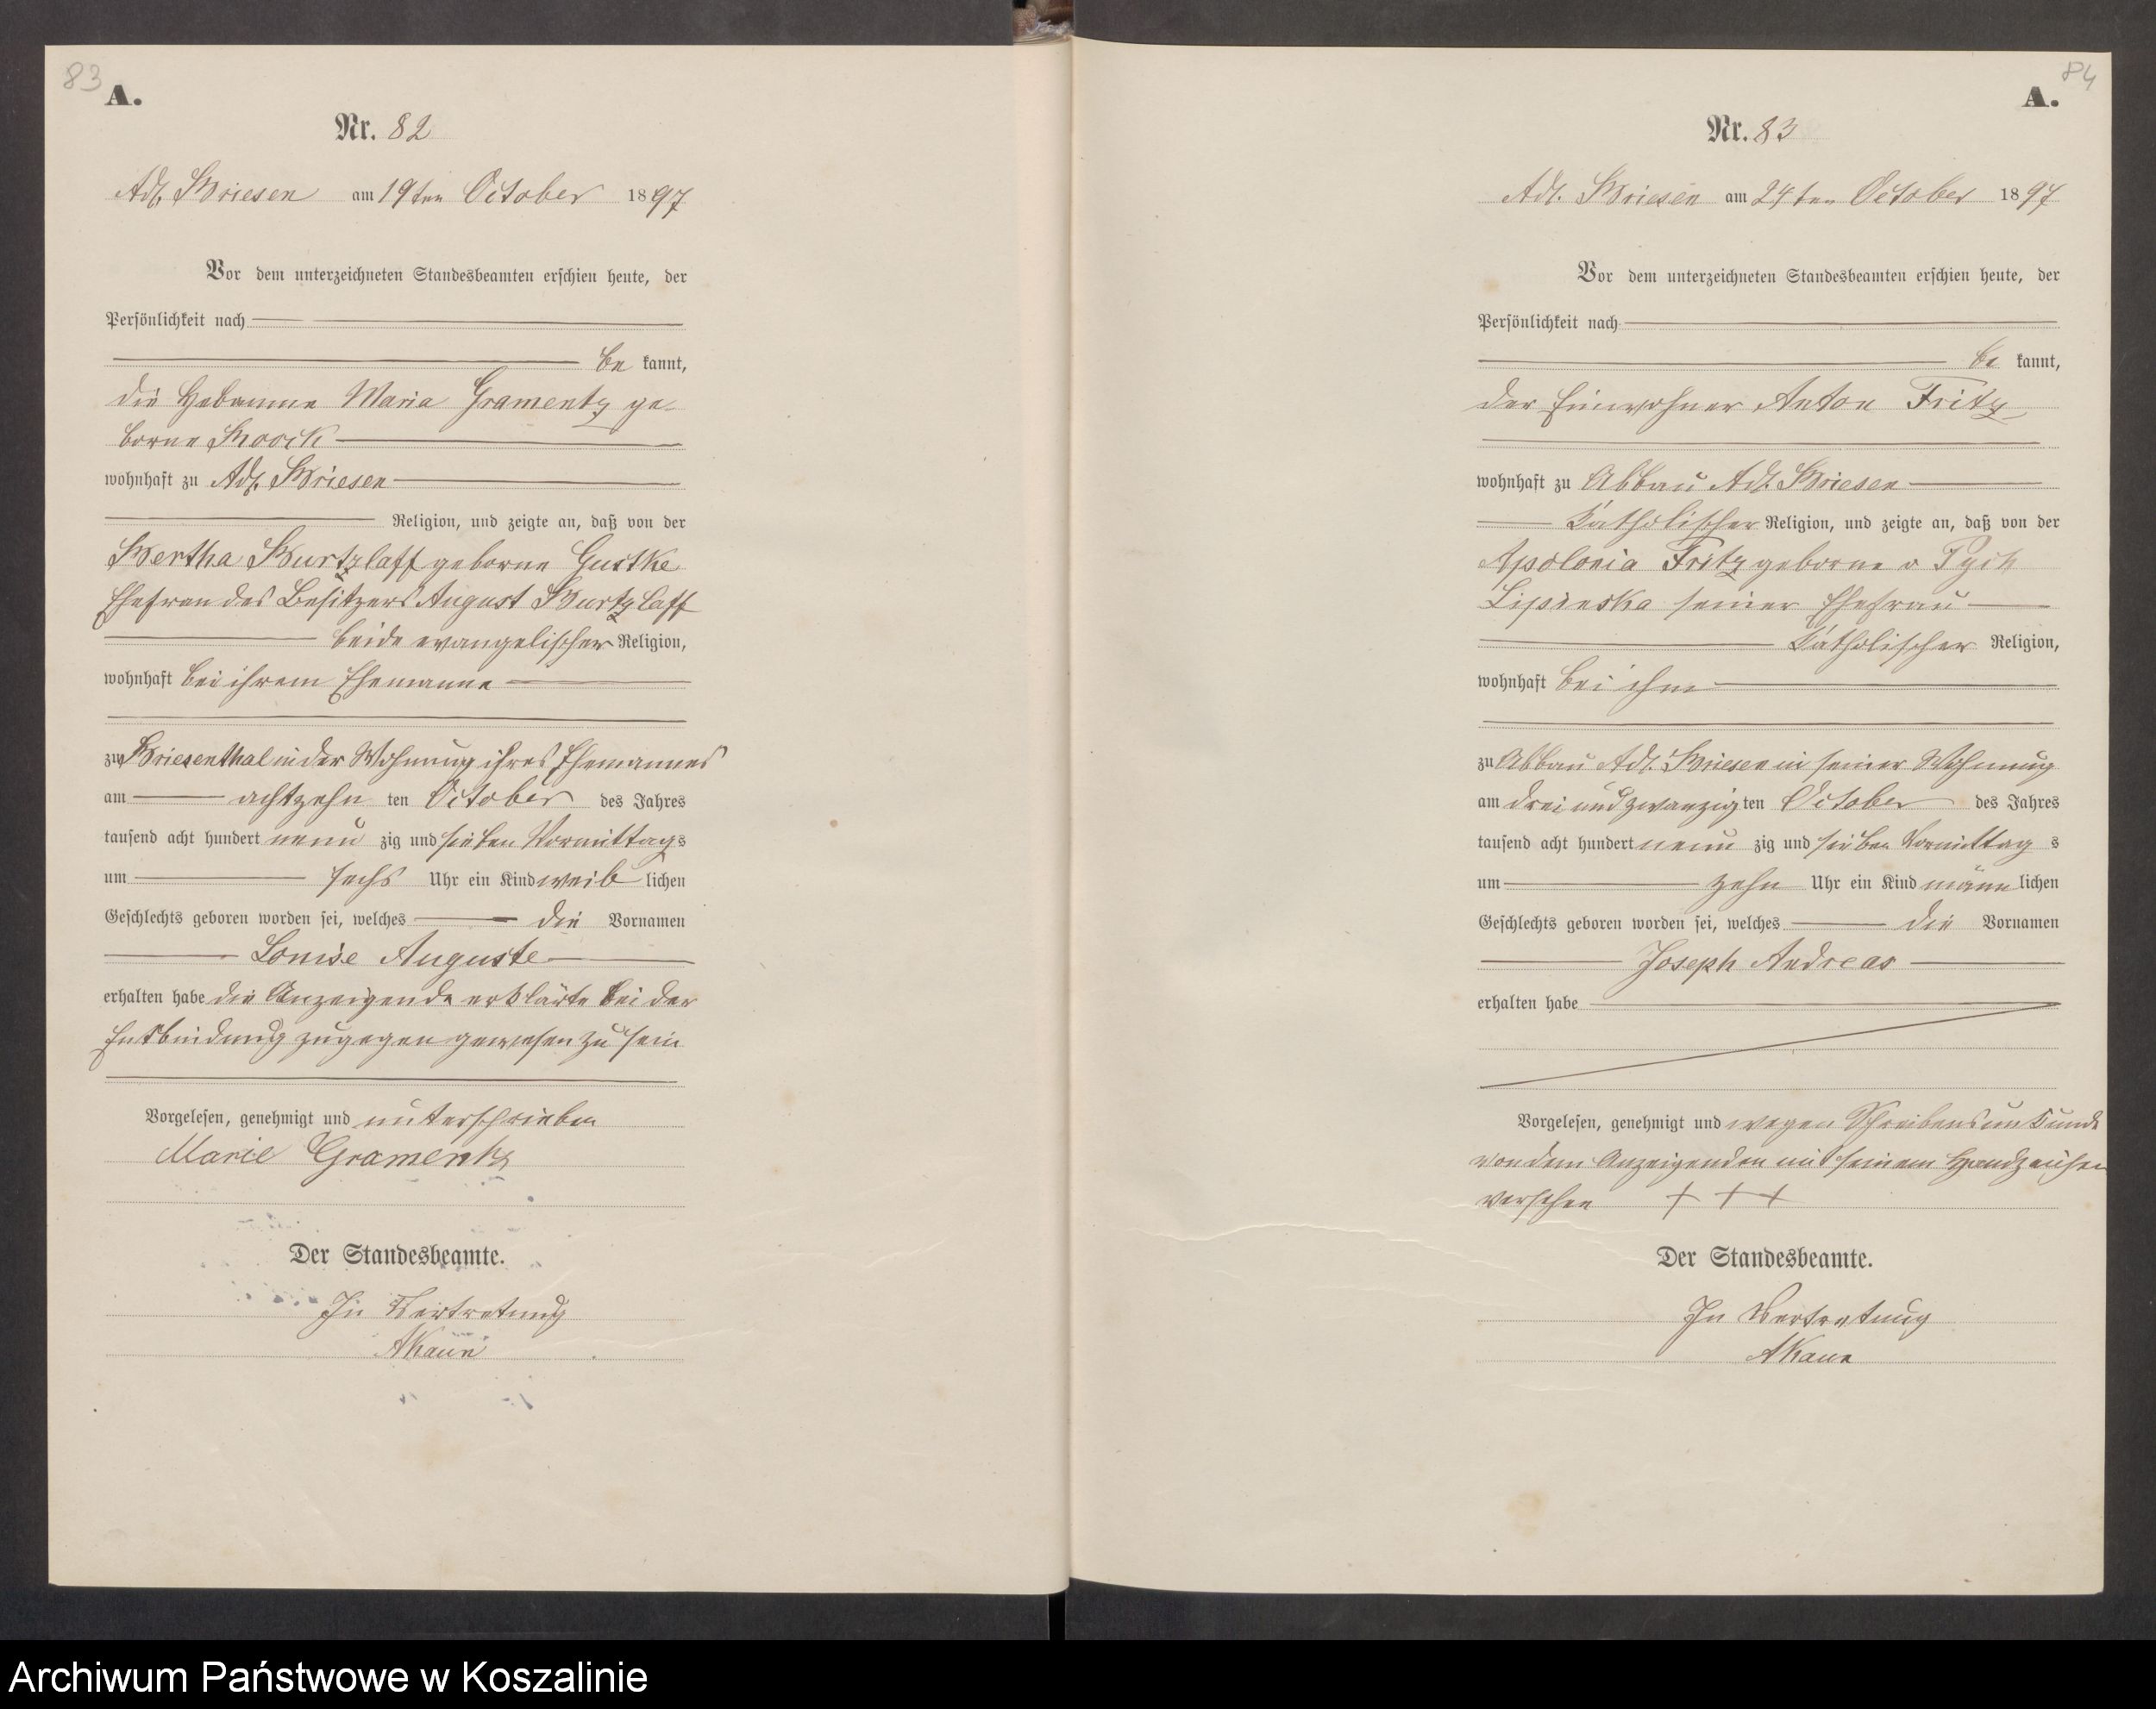 83
A.
Nr. 82
Adl. Briesen am 19ten October 1897
Vor dem unterzeichneten Standesbeamten erschien heute, der
Persönlichkeit nach
be kannt,
die Hebamme Maria Gramentz ge-
borne
wohnhaft zu Adl. Briesen
Religion, und zeigte an, daß von der
Bertha Wurtzlaff geborne Gustke
Ehefrau des Besitzers August Wurtzlaff
beide evangelischer Religion,
wohnhaft bei ihrem Ehemanne
zu Briesenthal in der Wohnung ihres Ehemannes
am achtzehn ten October des Jahres
tausend acht hundert neun zig und sieben Vormittags
um sechs Uhr ein Kind weib lichen
Geschlechts geboren worden sei, welches die Vornamen
Louise Auguste
erhalten habe die Anzeigende erklärte bei der
Entbindung zugegen gewesen zu sein
Vorgelesen, genehmigt und unterschrieben
Marie Gramentz
Der Standesbeamte.
In Vertretung
84
A.
Nr. 83
Adl. Briesen am 24ten October 1897
Vor dem unterzeichneten Standesbeamten erschien heute, der
Persönlichkeit nach
be kannt,
der Einwohner Anton Fritz
wohnhaft zu Abbau Adl. Briesen
katholischer Religion, und zeigte an, daß von der
Apolonia Fritz geborne v
Lipinska seiner Ehefrau
katholischer Religion,
wohnhaft bei ihm
zu Abbau Adl. Briesen in seiner Wohnung
am drei und zwanzig ten October des Jahres
tausend acht hundert neun zig und sieben Vormittag s
um zehn Uhr ein Kind männ lichen
Geschlechts geboren worden sei, welches die Vornamen
Joseph Andreas
erhalten habe
Vorgelesen, genehmigt und wegen Schreibensunkunde
von dem Anzeigenden mit seinem Handzeichen
versehen + + +
Der Standesbeamte.
In Vertretung
Archiwum Państwowe w Koszalinie